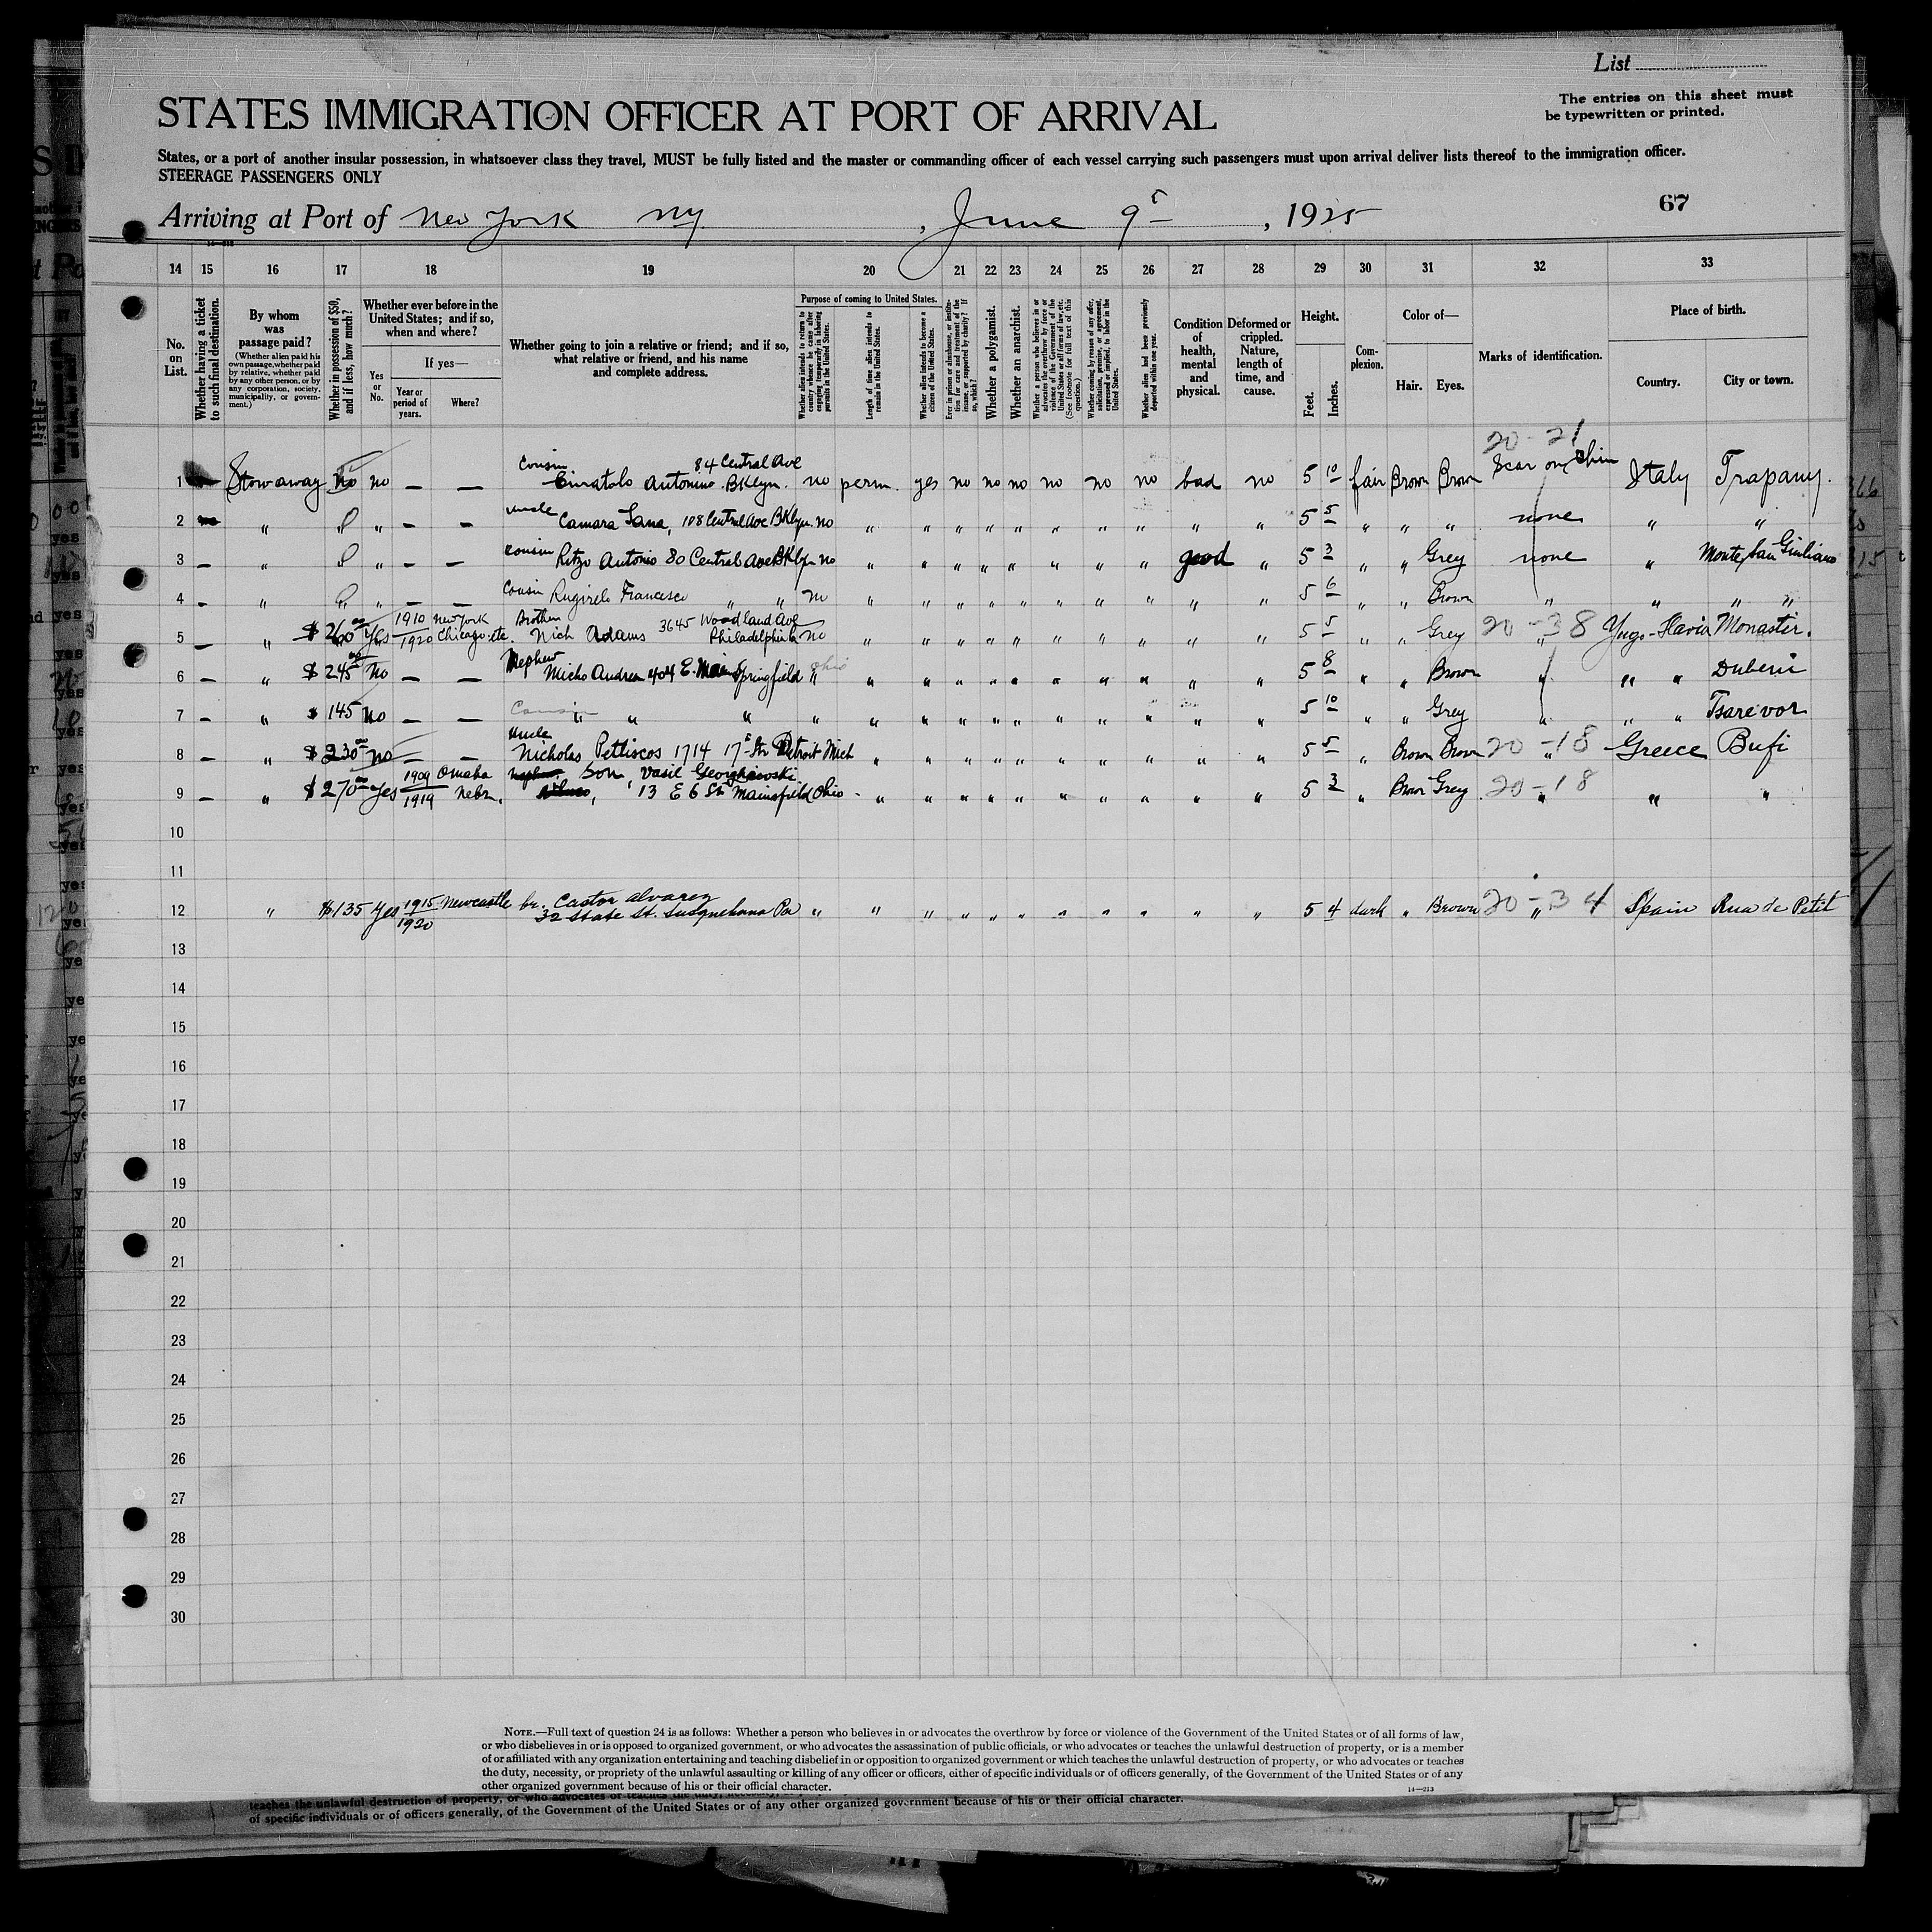 List
The entries on this sheet must
be typewritten or printed.
STATES IMMIGRATION OFFICER AT PORT OF ARRIVAL
States, or a port of another insular possession, in whatsoever class they travel, MUST be fully listed and the master or commanding officer of each vessel carrying such passengers must upon arrival deliver lists thereof to the immigration officer.
STEERAGE PASSENGERS ONLY
67
Arriving at Port of New York NY. , June 9 , 1925
14 15 16 17 18 19 20 21 22 23 24 25 26 27 28 29 30 31 32 33
No. on List.
Whether having a ticket to such final destination.
By whom was passage paid?
(Whether alien paid his own passage, whether paid by relative, whether paid by any other person, or by any corporation, society, municipality, or government.)
Whether in possession of $50, and if less, how much?
Whether ever before in the United States; and if so, when and where?
Yes or No.
If yes—
Year or period of years.
Where?
Whether going to join a relative or friend; and if so, what relative or friend, and his name and complete address.
Purpose of coming to United States.
Whether alien intends to return to country whence he came after engaging temporarily in laboring pursuits in the United States.
Length of time alien intends to remain in the United States.
Whether alien intends to become a citizen of the United States.
Ever in prison or almshouse, or institution for care and treatment of the insane, or supported by charity? If so, which?
Whether a polygamist.
Whether an anarchist.
Whether a person who believes in or advocates the overthrow by force or violence of the Government of the United States or all forms of law, etc. (See footnote for full text of this question.)
Whether coming by reason of any offer, solicitation, promise, or agreement, expressed or implied, to labor in the United States.
Whether alien had been previously deported within one year.
Condition of health, mental and physical.
Deformed or crippled. Nature, length of time, and cause.
Height.
Feet. Inches.
Complexion.
Color of—
Hair. Eyes.
Marks of identification.
Place of birth.
Country. City or town.
20-21
1 Stowaway no no — — Cousin Antonino 84 Central Ave BKlyn. no perm. yes no no no no no no bad no 5 10 fair Brown Brown Scar on Chin Italy Trapany.
2 " " — — uncle Camara 108 Central Ave BKlyn. no " " " " " " " " " " 5 5 " " " none " "
3 — " " — — cousin Antonio 80 Central Ave BKlyn no " " " " " " " " good " 5 3 " " Grey none " Monte San Giuliano
4 — " " " — — cousin Francesco " " no " " " " " " " " " " 5 6 " " Brown " " " "
5 — " $260 yes 1910 1920 New York Chicago etc. Brother Nich Adams 3645 Woodland Ave Philadelphia no " " " " " " " " " " 5 5 " " Grey 20-38 " Yugo-Slavia Monastir.
6 — " $245 No — — Nephew Micho Andrea 404 E. Main Springfield Ohio " " " " " " " " " " " 5 8 " " Brown " " "
7 — " $145 No — — Cousin " " " " " " " " " " " " " " 5 10 " " Grey " " " Tsarevor
8 — " $230 no — — Uncle Nicholas Petliscos 1714 17 St. Detroit Mich " " " " " " " " " " 5 5 " Brown Brown 20-18 " Greece Bufi
9 — " $270 yes 1909 1919 Omaha Nebr. Son, Vasil 13 E 6 St Mainsfield Ohio " " " " " " " " " " 5 3 " Brown Grey 20-18 " " "
10
11
12 " $135 yes 1915 1920 Newcastle br. Castor Alvarez 32 State St. Susquehana Pa " " " " " " " " " " " 5 4 dark " Brown 20-34 " Spain Rua de Petit
13
14
15
16
17
18
19
20
21
22
23
24
25
26
27
28
29
30
NOTE.—Full text of question 24 is as follows: Whether a person who believes in or advocates the overthrow by force or violence of the Government of the United States or of all forms of law,
or who disbelieves in or is opposed to organized government, or who advocates the assassination of public officials, or who advocates or teaches the unlawful destruction of property, or is a member
of or affiliated with any organization entertaining and teaching disbelief in or opposition to organized government or which teaches the unlawful destruction of property, or who advocates or teaches
the duty, necessity, or propriety of the unlawful assaulting or killing of any officer or officers, either of specific individuals or of officers generally, of the Government of the United States or of any
other organized government because of his or their official character.
14—213
teaches the unlawful destruction of property, or who advocates or teaches the duty, necessity,
of specific individuals or of officers generally, of the Government of the United States or of any other organized government because of his or their official character.